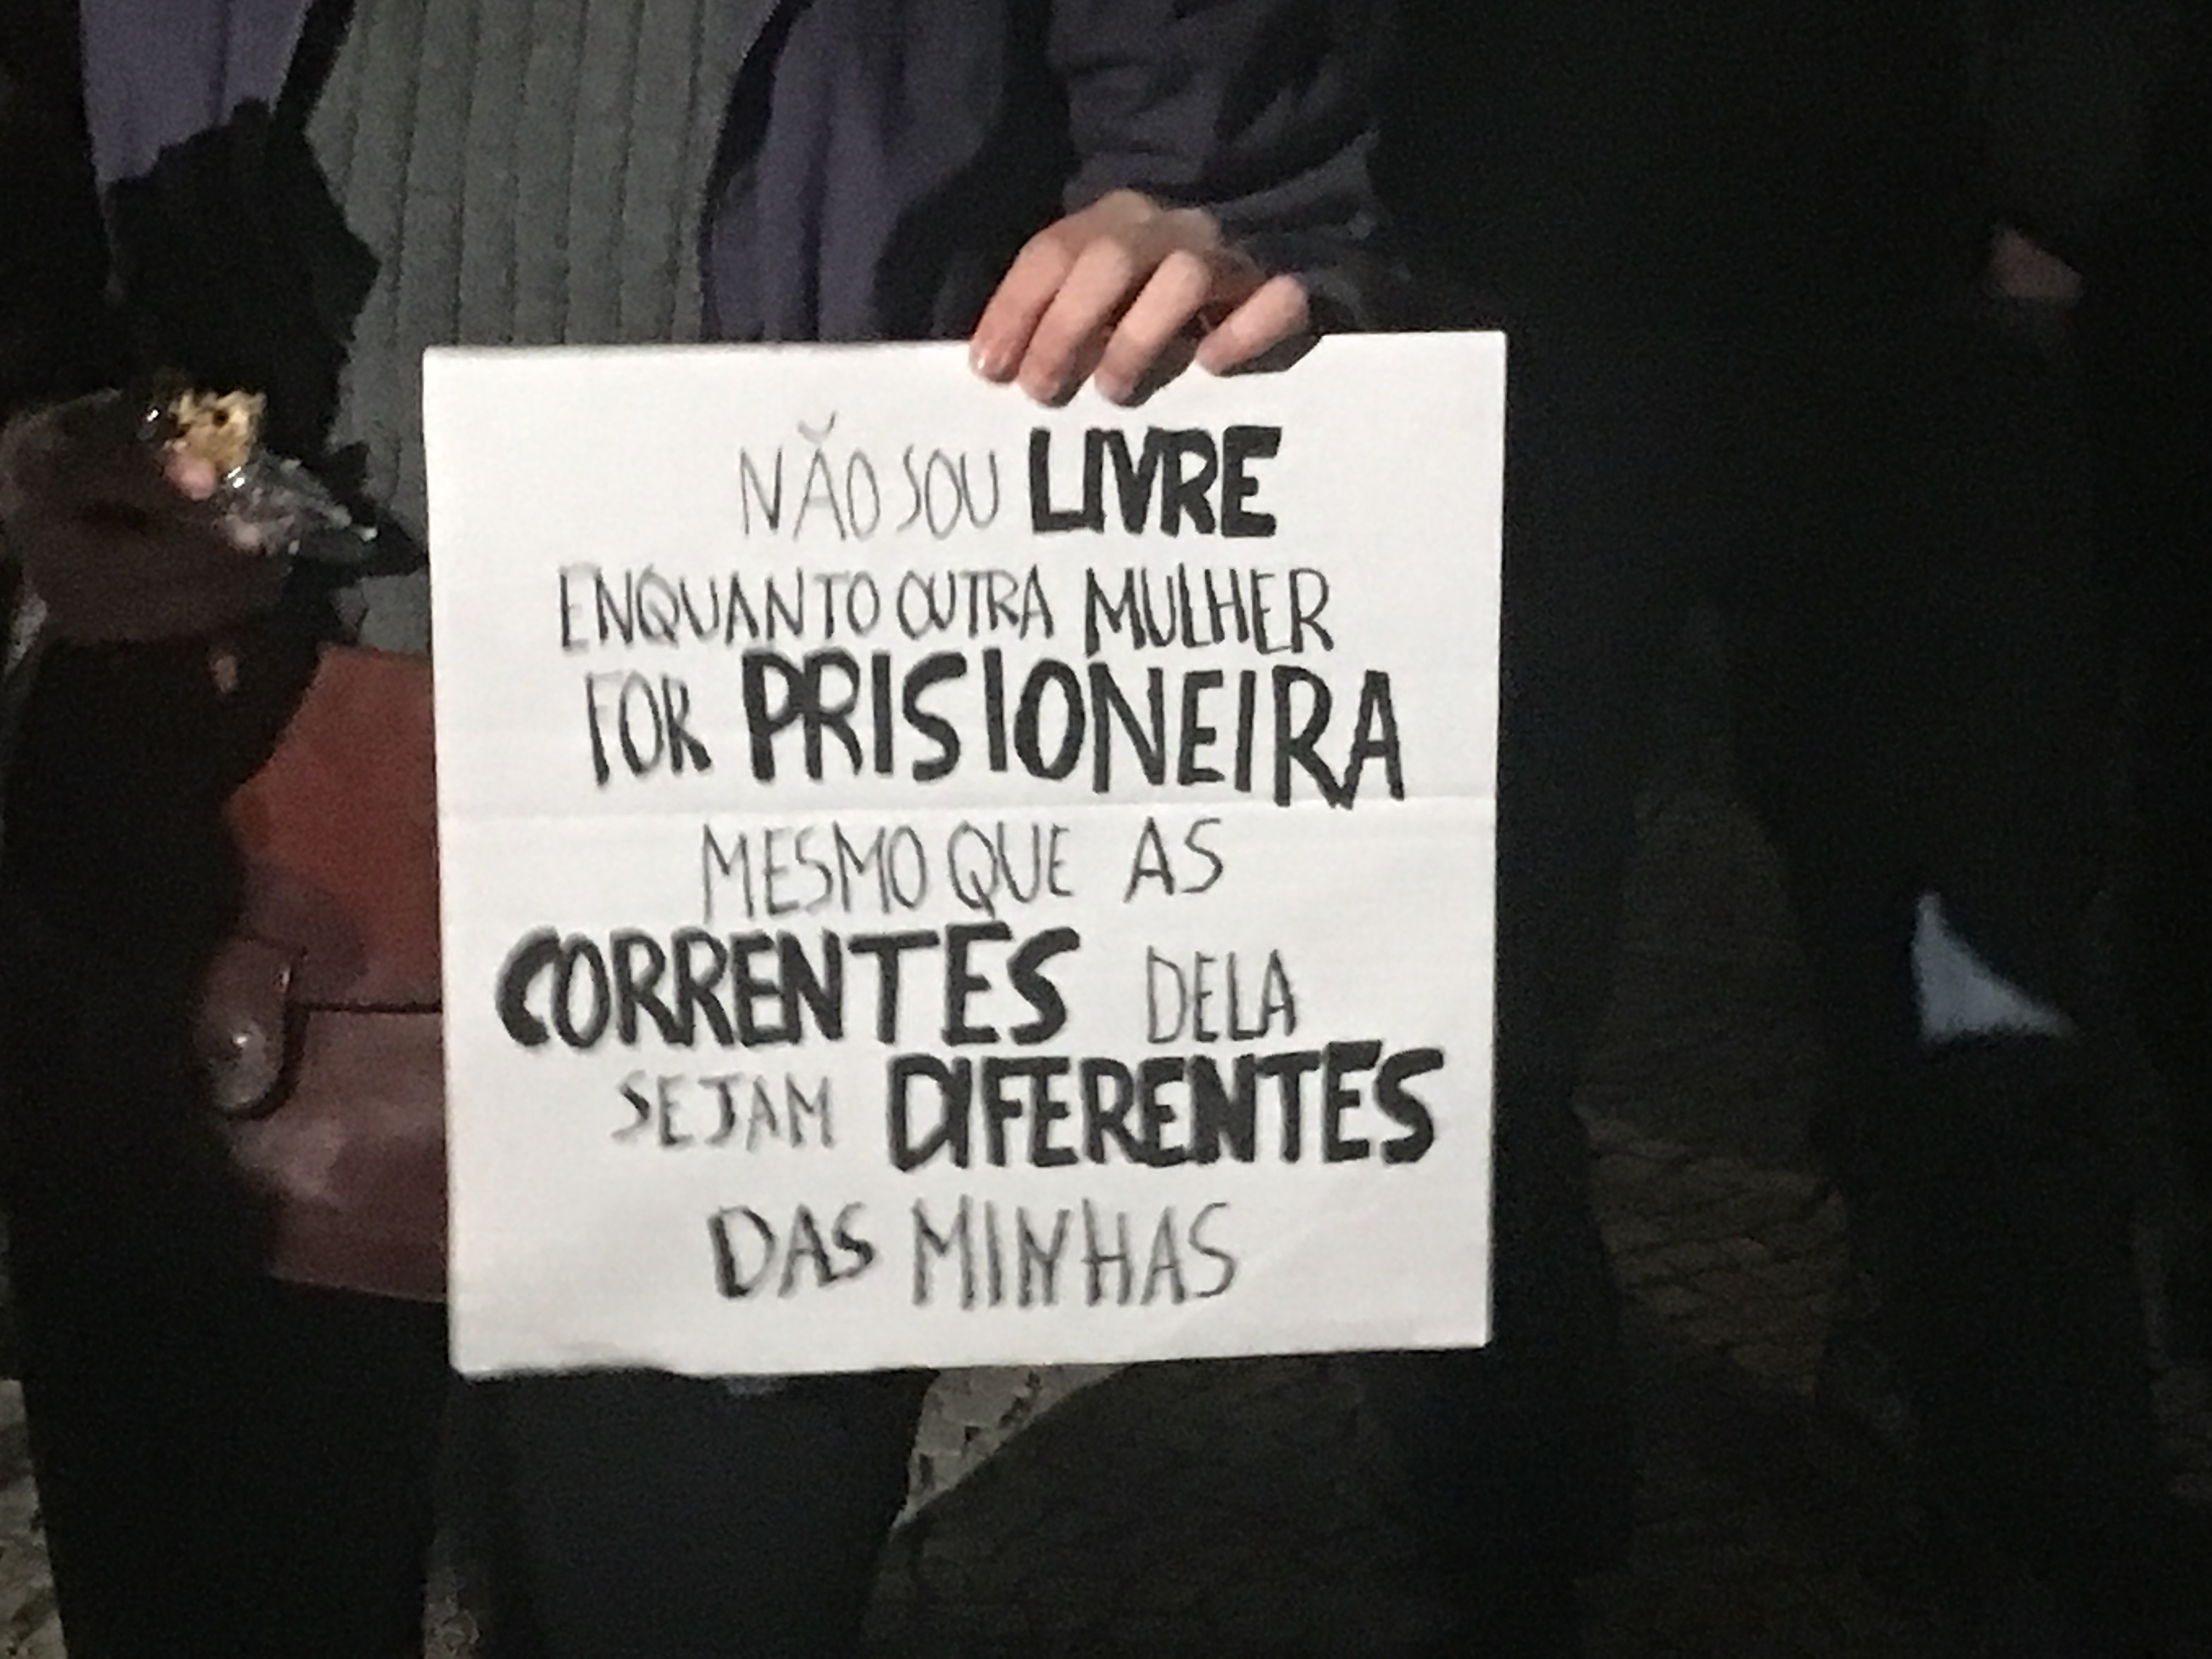 NÃO SOU LIVRE
ENQUANTO OUTRA MULHER
FOR PRISIONEIRA
MESMO QUE AS
CORRENTES DELA
SEJAM DIFERENTES
DAS MINHAS